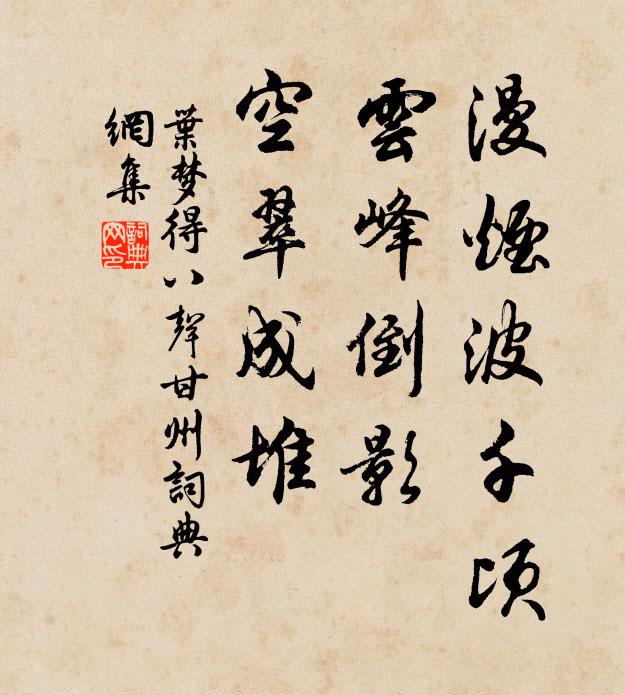 漫煙波千頃
雲峰倒影
空翠成堆
葉梦得八聲甘州詞典
網集
詞典网印